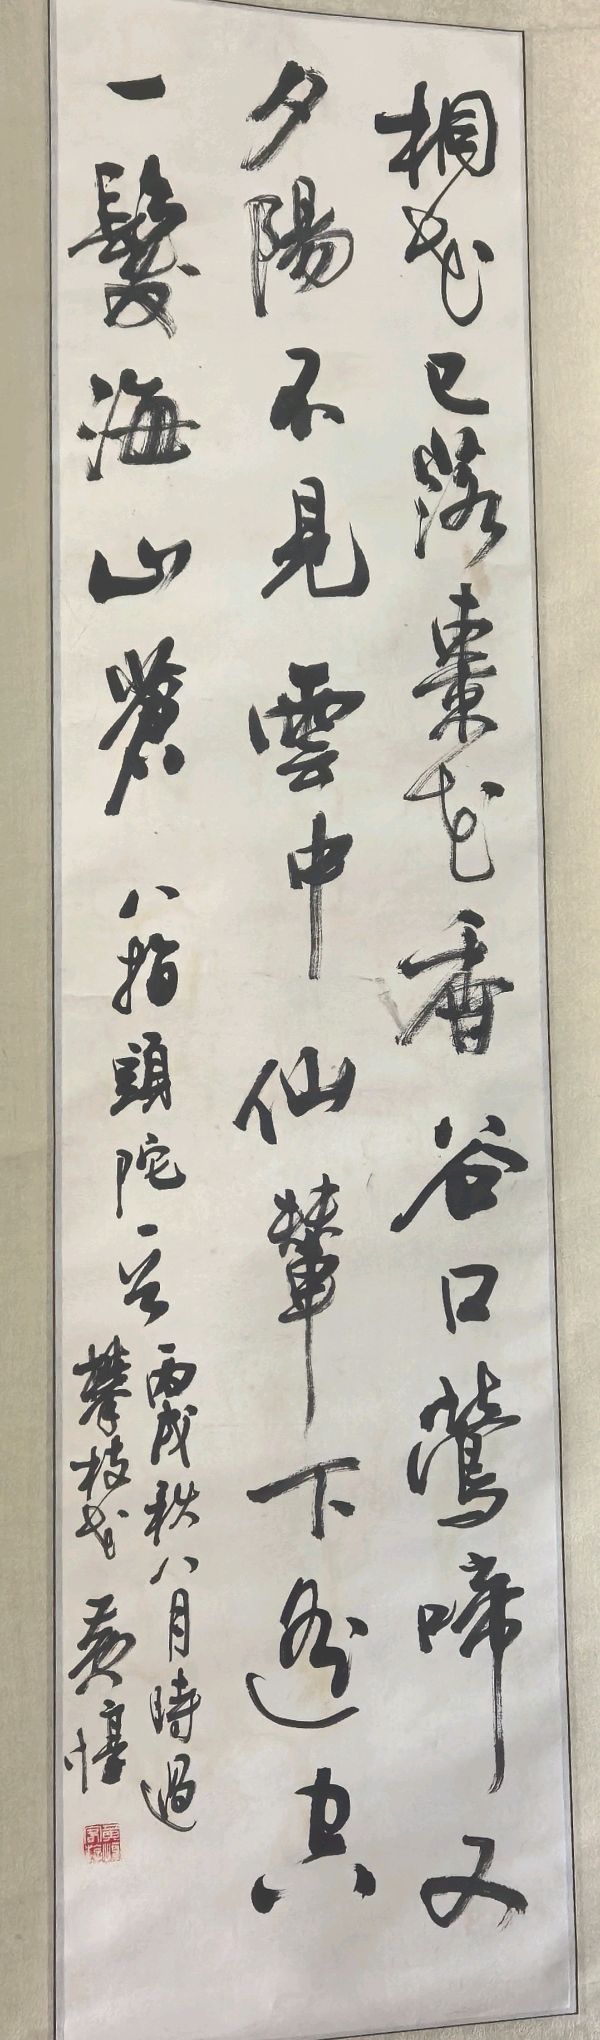 桐花已落棗花香谷口鶯啼又
夕陽不見雲中仙輦下遙空
一髮海山蒼
八指頭陀一首
丙戌秋八月時過
攀枝花 黃惇